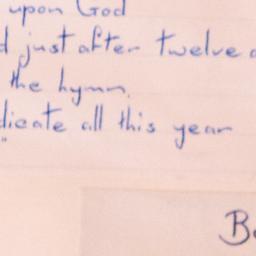 upon God
just after twelve
the hymn.
dicate all this year
"